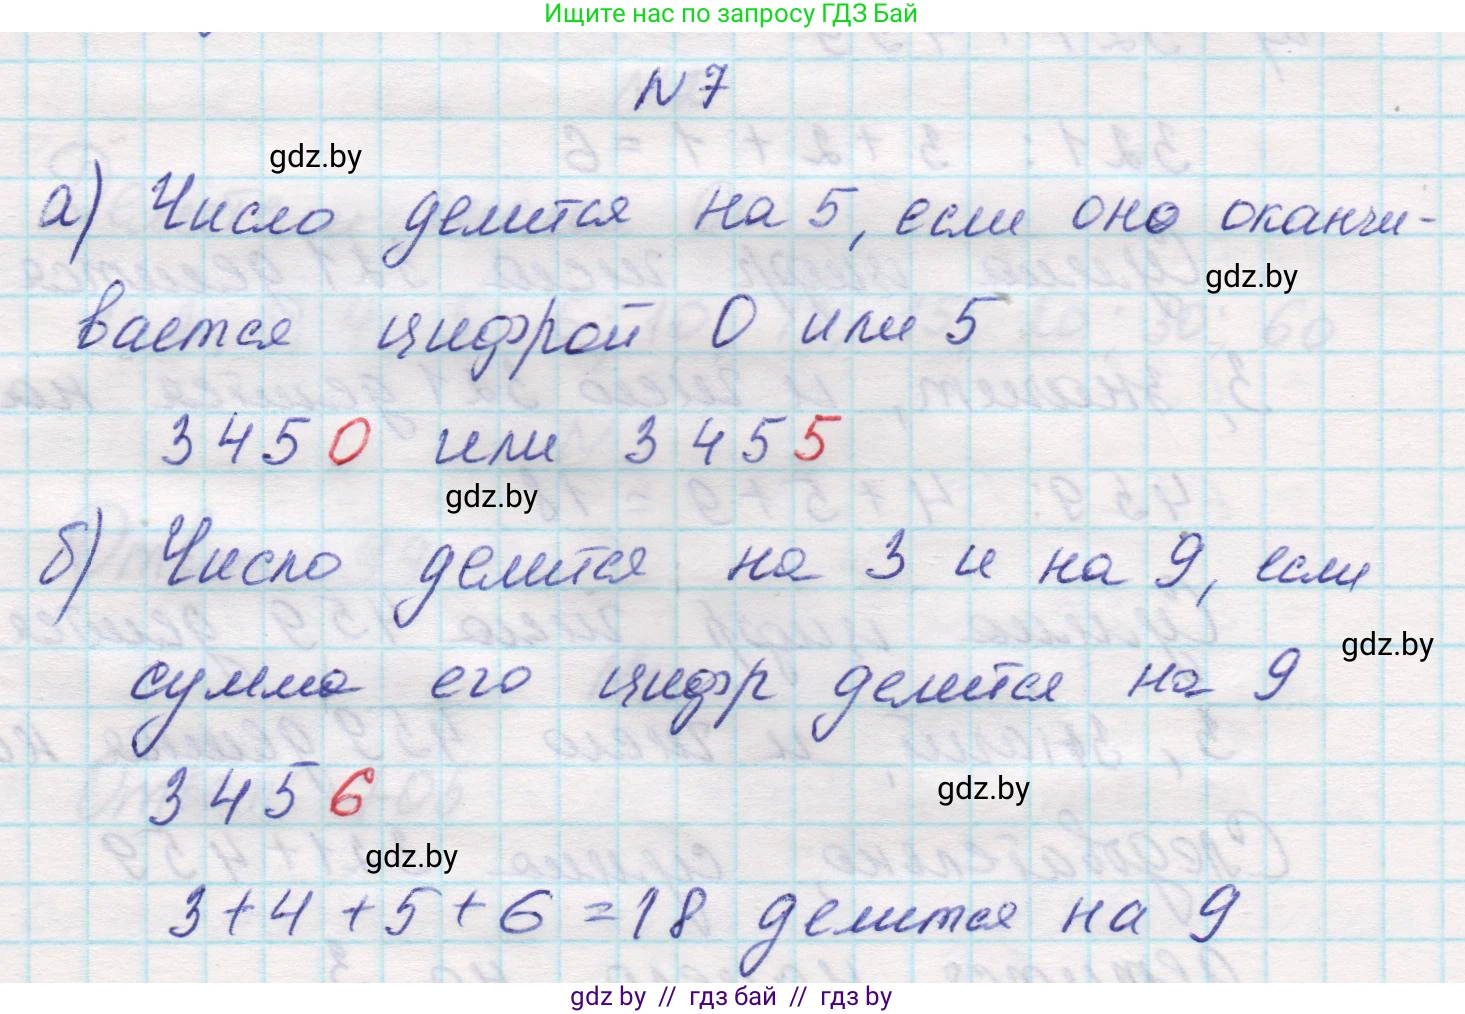 Ищите нас по запросу ГДЗ Бай
N 7
gdz.by
а) Число делится на 5, если оно оканчи-
gdz.by
вается цифрой 0 или 5
3450 или 3455
gdz.by
б) Число делится на 3 и на 9, если
gdz.by
сумма его цифр делится на 9
3456
gdz.by
gdz.by
3+4+5+6=18 делится на 9
gdz by // гдз бай // гдз by